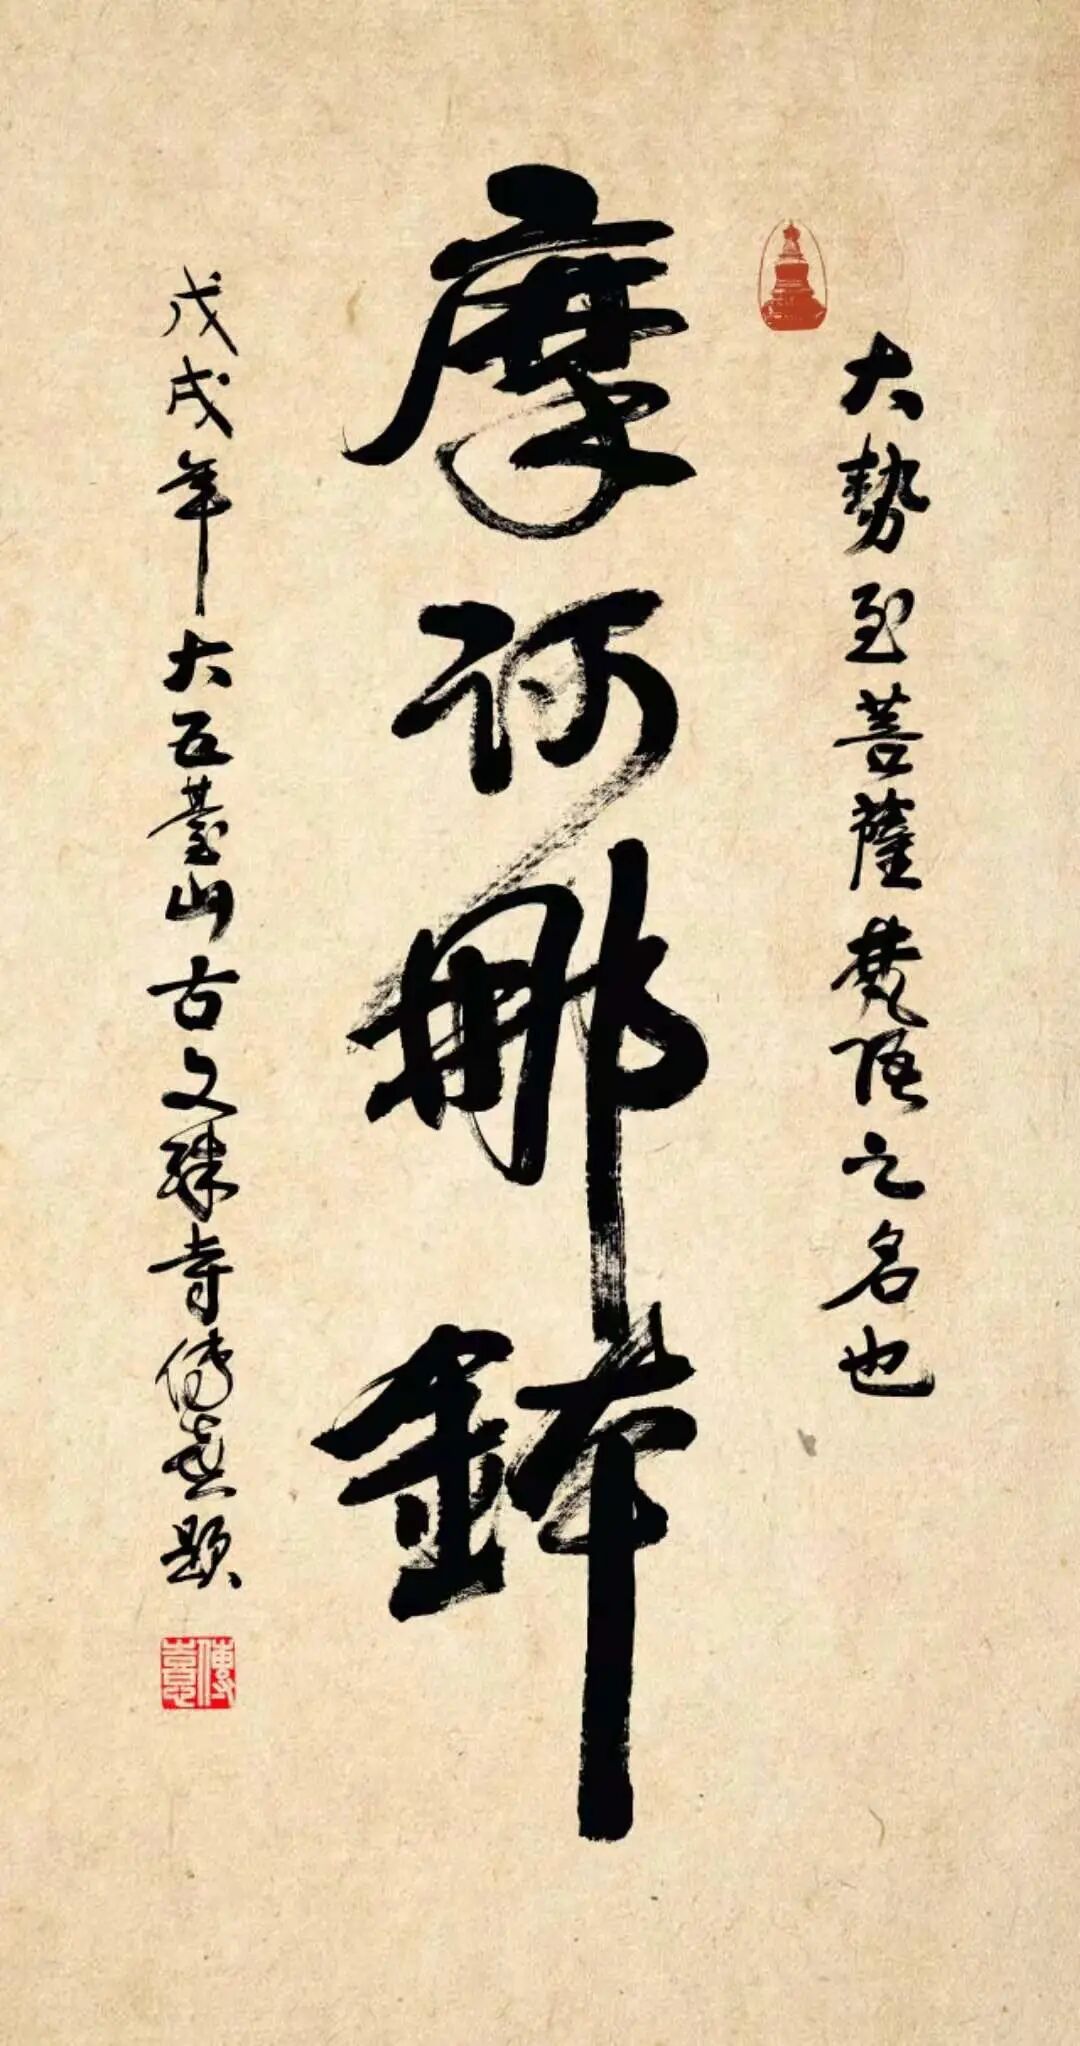 大势至菩薩梵语之名也
摩诃那鉢
戊戌年大五臺山古文殊寺傳喜題
傳喜